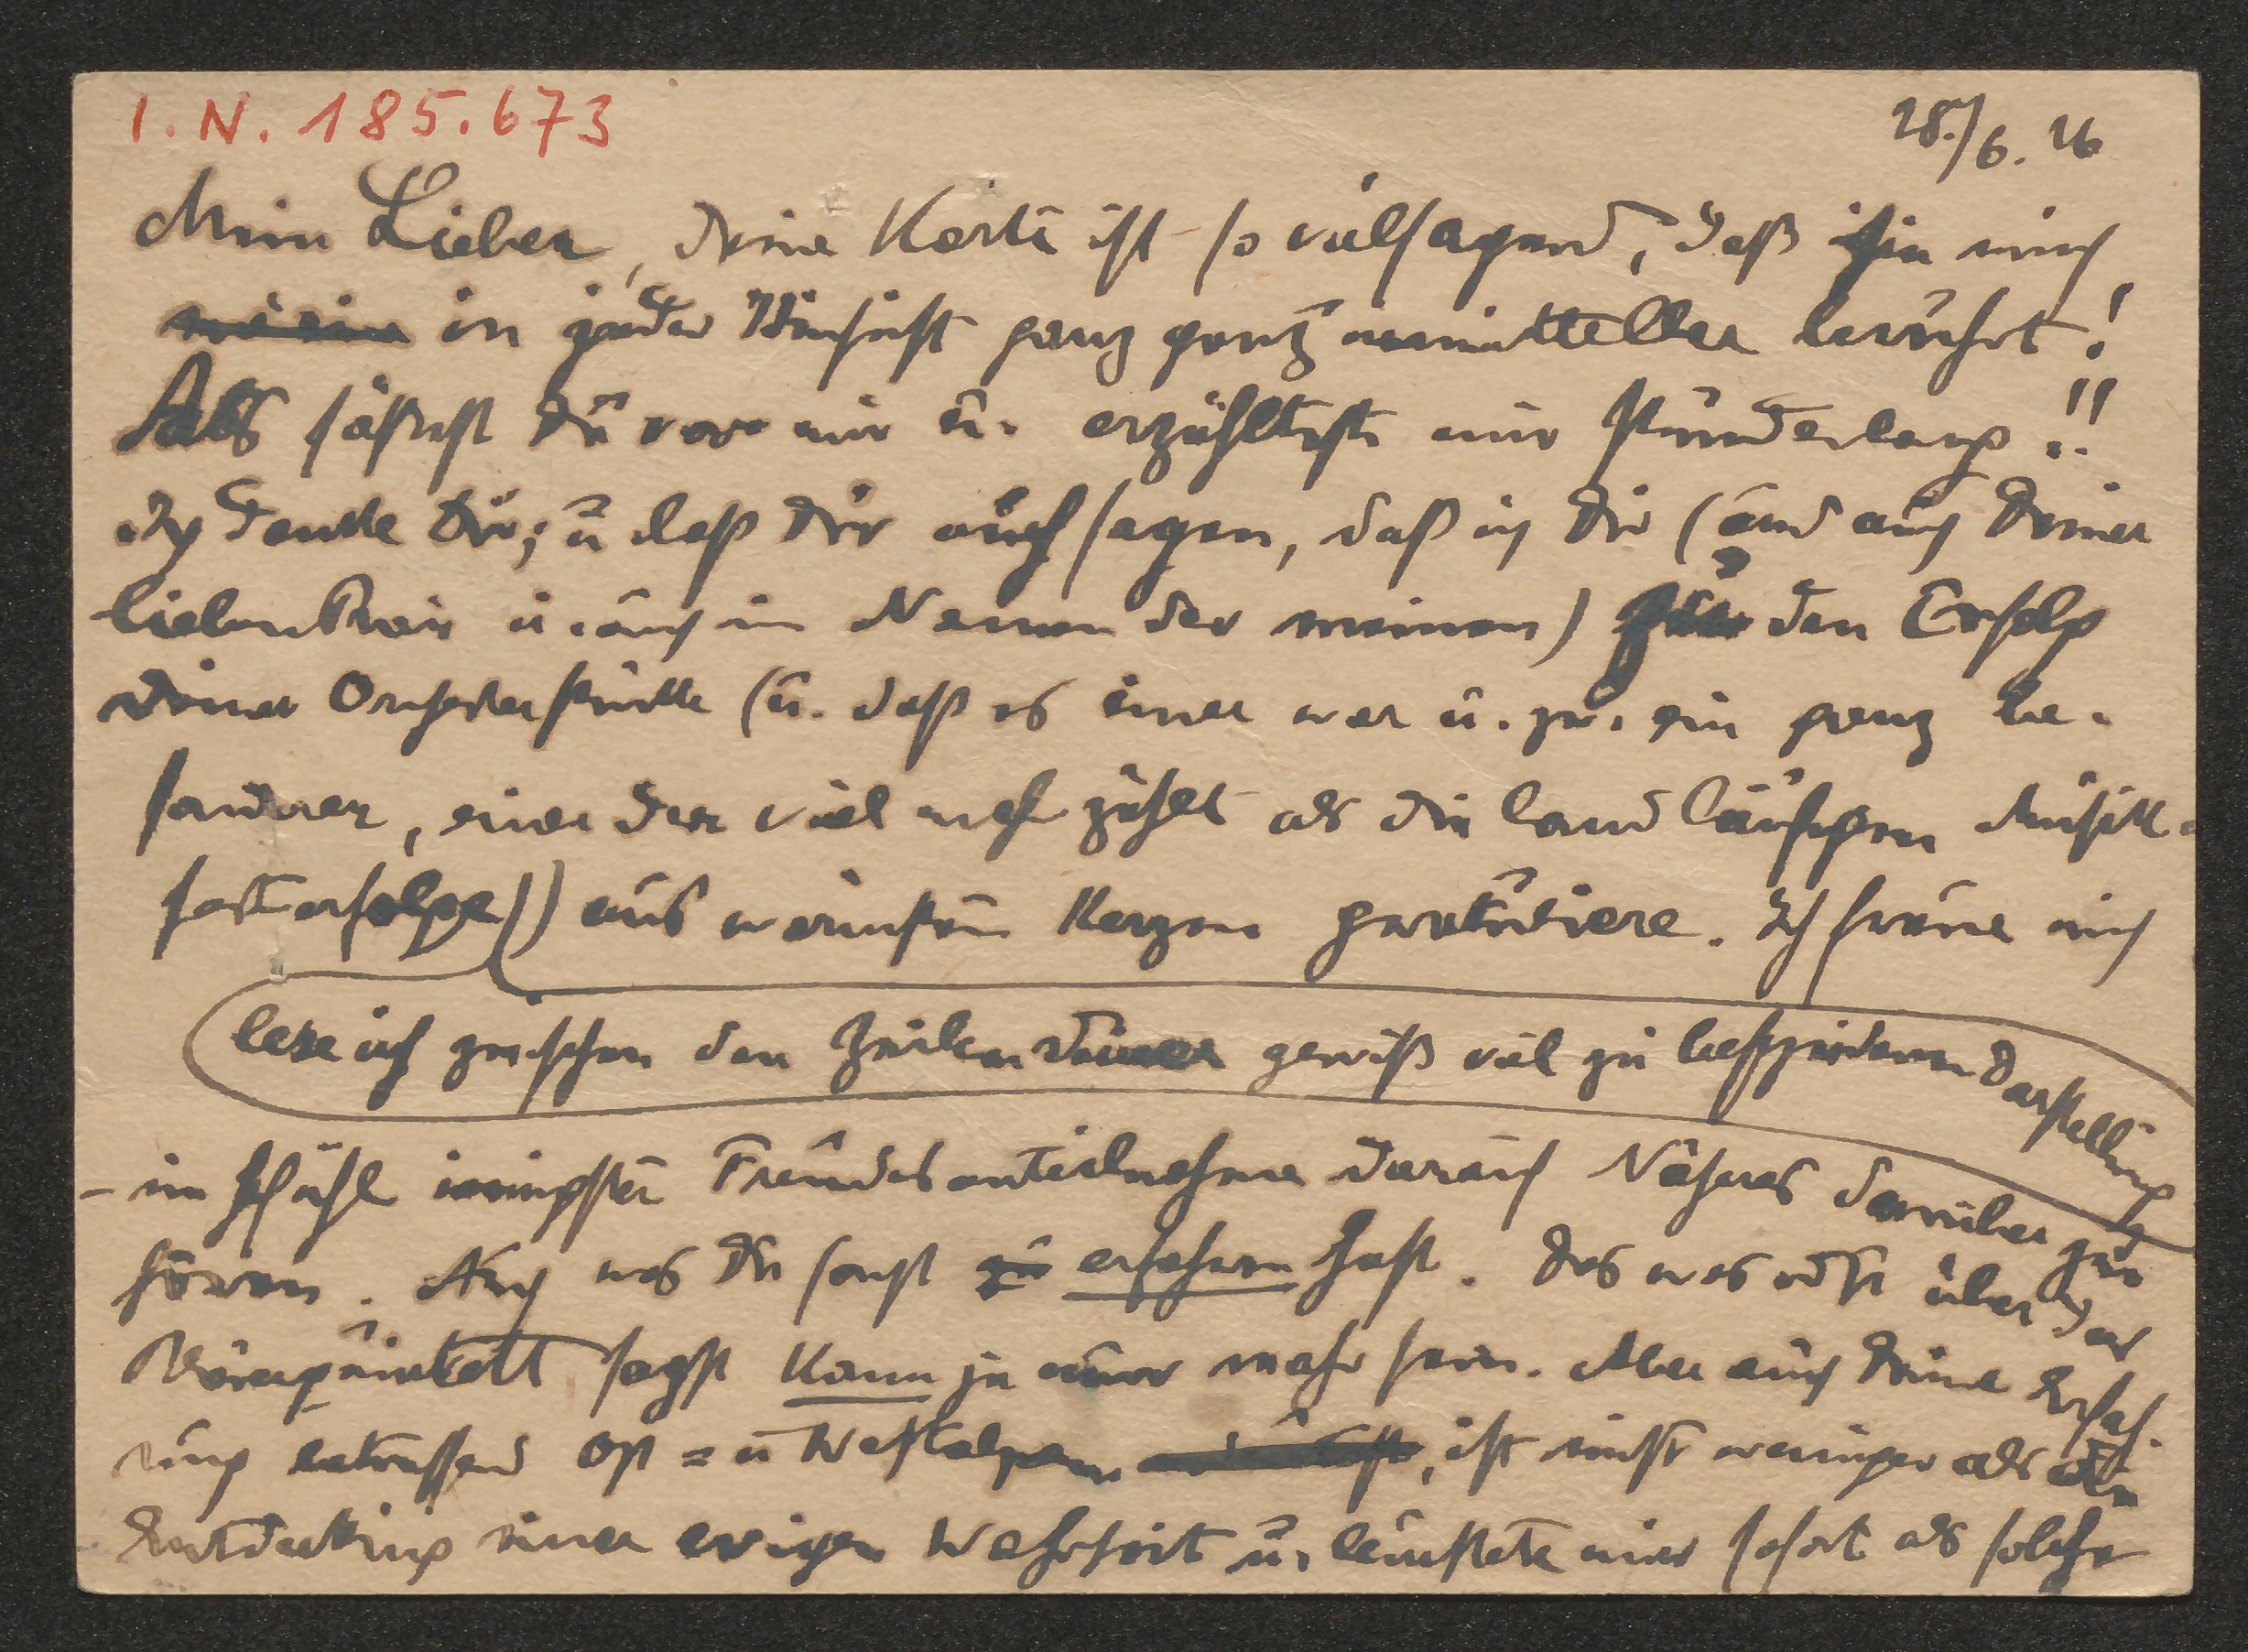 I.N. 185.673
28./6. 26
Mein Lieber, Deine Karte ist so vielsagend, daß sie mich
in jeder Hinsicht ganz ganz unmittelbar berührt!
Als säßest Du vor mir u. erzähltest mir stundenlang!!
Ich danke Dir; u laß Dir auch sagen, daß ich Dir (und auch Deiner
lieben Frau u. auch im Namen der meinen) für den Erfolg
Deiner Orchesterstücke (u. daß es einer war u. zw. ein ganz be-
sonderer, einer der viel mehr zählt als die landläufigen Musik-
festerfolge)) aus wärmstem Herzen gratuliere. Ich freue mich
lese ich zwischen den Zeilen Deiner gewiß viel zu bescheidenen Darstellung
- im Gefühl innigster Freundesanteilnahme darauf Näheres darüber zu
hören. Auch was Du sonst erfahren hast. Das was Du über das
Bläserquintett sagst kann ja nur wahr sein. Aber auch Deine Erfah-
rung betreffend Ost= u Westalpen, ist nicht weniger als die
Entdeckung einer ewigen Wahrheit u. leuchtete mir sofort als solche